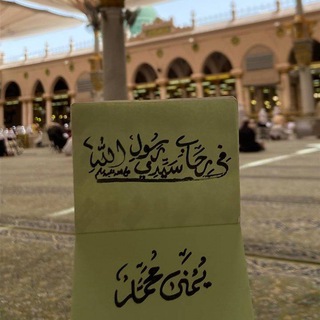 في رحاب سيدي رسول الله ﷺ
يمنى محمد